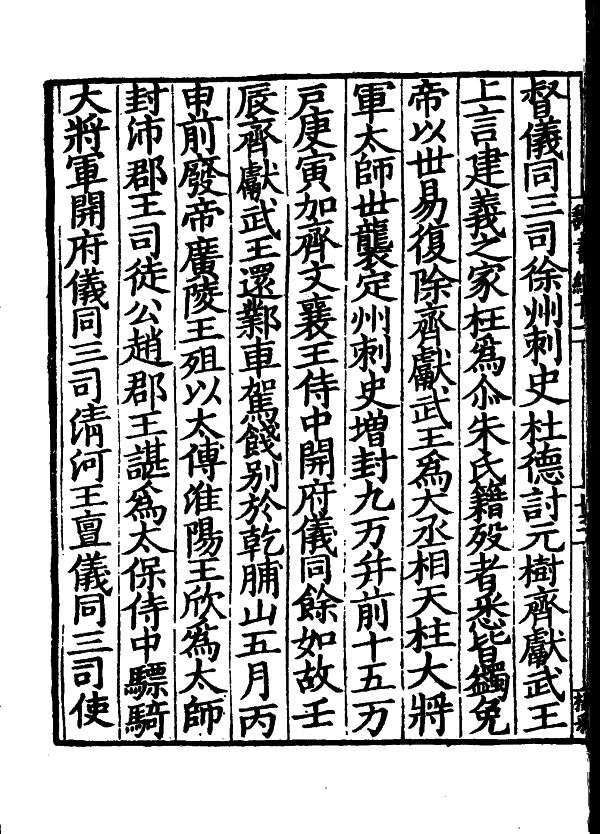 督儀同三司徐州刺史杜德討元樹齊獻武王
上言建義之家枉為尒朱氏籍歿者悉皆蠲免
帝以世易復除齊獻武王為大丞相天柱大將
軍太師世襲定州刺史增封九万并前十五万
戶庚寅加齊文襄王侍中開府儀同餘如故壬
辰齊獻武王還鄴車駕餞別於乾脯山五月丙
申前廢帝廣陵王殂以太傅淮陽王欣為太師
封沛郡王司徒公趙郡王諶為太保侍中驃騎
大將軍開府儀同三司清河王亶儀同三司使